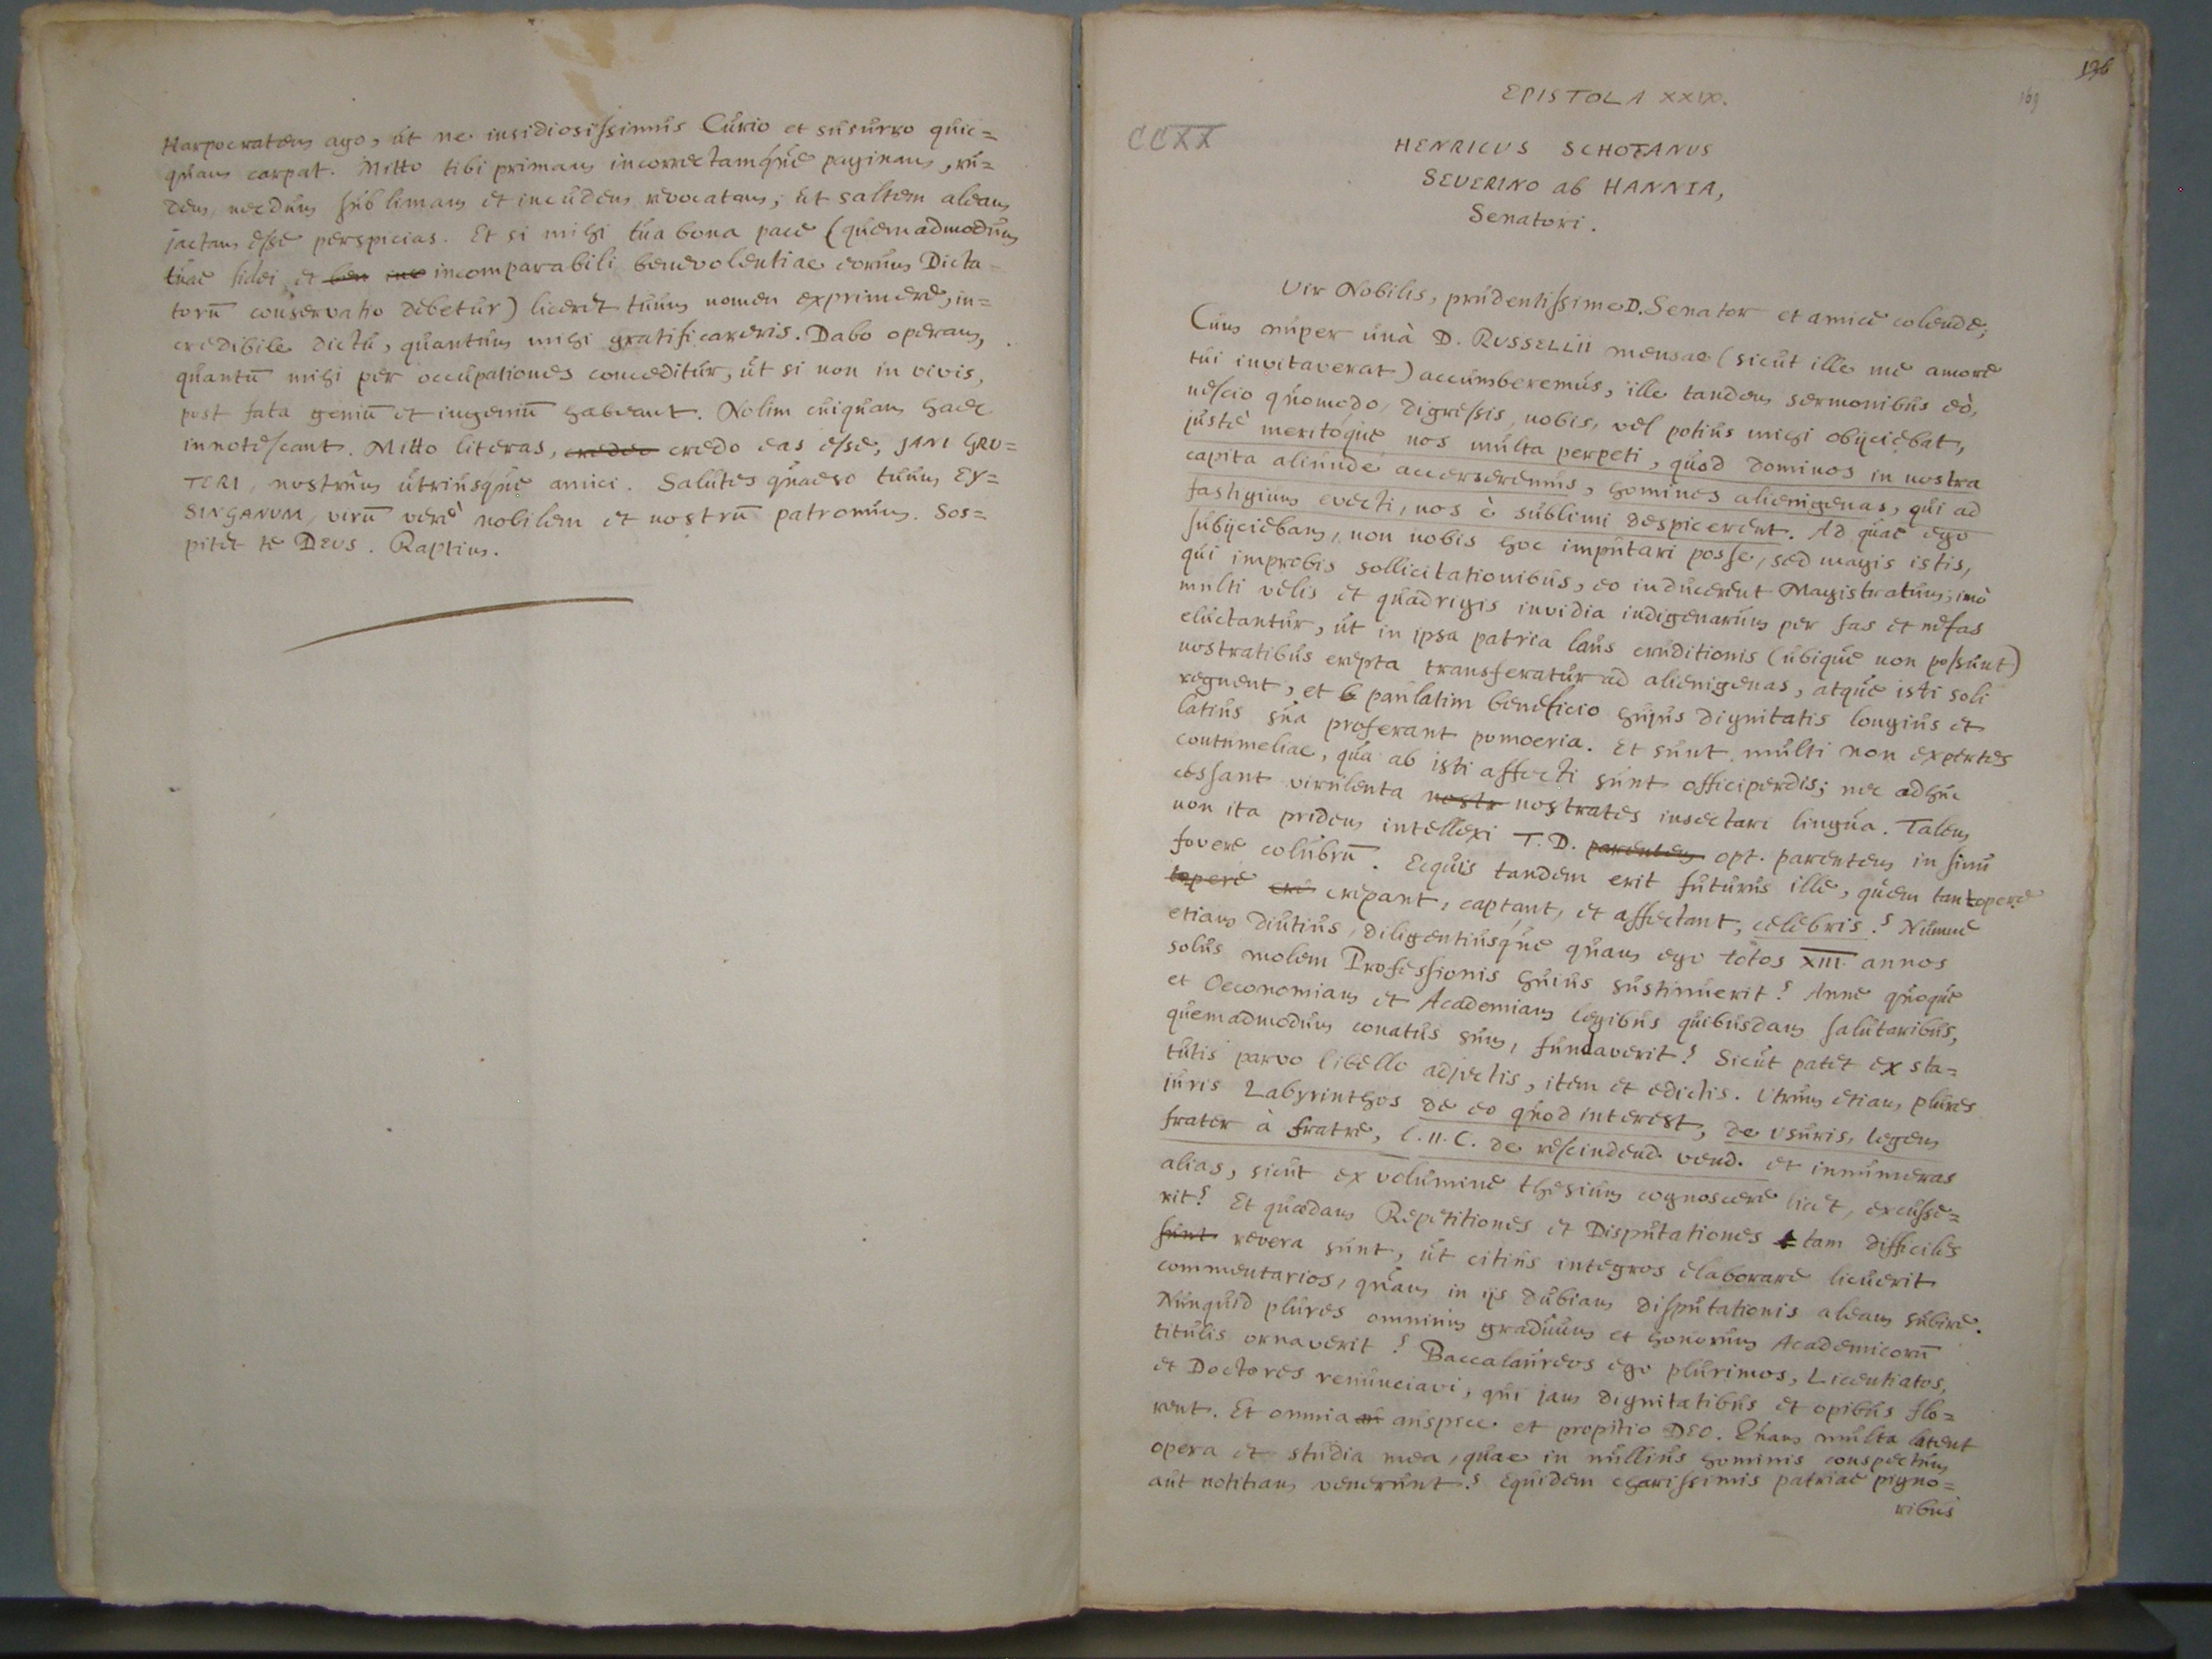 Harpocratem ago, ut ne insidiosissimus Curio et susurro quic=
quam carpat. Mitto tibi primam incorrectamque paginam, ru=
dem, necdum sub limam et incudem revocatam; ut saltem aleam
jactam esse perspicias. Et si mihi tua bona pace (quemadmodum
tuae fidei et ben inc incomparabili benevolentiae eorum Dicta-
torū conservatio debetur) liceret tuum nomen exprimere, in=
credibile dictu, quantum mihi gratificareris. Dabo operam,
quantū mihi per occupationes conceditur, ut si non in vivis,
post fata geniū et ingeniū habeant. Nolim cuiquam haec
innotescant. Mitto literas, credo eas esse, JANI GRU=
TERI, nostrum utriusque amici. Salutes quaeso tuum EY=
SINGANUM, virū verè nobilem et nostrū patronum. Sos=
pitet te DEUS. Raptim.
126
169
EPISTOLA XXIX.
CCXX
HENRICUS SCHOTANUS
SEVERINO ab HANNIA,
Senatori.
Vir Nobilis, prudentissime D. Senator et amice colende;
Cum nuper unà D. RUSSELLII mensae (sicut ille me amore
tui invitaverat) accumberemus, ille tandem sermonibus eò,
nescio quomodo, digressis, nobis, vel potius mihi obijciebat,
justè meritoque nos multa perpeti, quod dominos in nostra
capita aliunde accerseremus, homines alienigenas, qui ad
fastigium evecti, nos è sublimi despicerent. Ad quae ego
subijciebam, non nobis hoc imputari posse, sed magis istis,
qui improbis sollicitationibus, eo inducerent Magistratum; imò
multi velis et quadrigis invidia indigenarum per fas et nefas
eluctantur, ut in ipsa patria laus eruditionis (ubique non possunt)
nostratibus erepta transferatur ad alienigenas, atque isti soli
regnent, et b paulatim beneficio hujus dignitatis longius et
latius sua proferant pomoeria. Et sunt multi non expertes
contumeliae, qua ab isti affecti sunt officiperdis; nec adhuc
cessant virulenta nostr nostrates insectari lingua. Talem
non ita pridem intellexi T. D. parentem opt. parentem in sinu
fovere colubrū. Ecquis tandem erit futurus ille, quem tantopere
topere cre crepant, captant, et affectant, celebris? Numne
etiam diutius, diligentiusque quam ego totos XIII annos
solus molem Professionis huius sustinuerit? Anne quoque
et Oeconomiam et Academiam legibus quibusdam salutaribus,
quemadmodum conatus sum, fundaverit? Sicut patet ex sta=
tutis parvo libello adjectis, item et edictis. Utrum etiam plures
juris Labyrinthos de eo quod interest, de usuris, legem
frater à fratre, l. II. C. de rescindend. vend. et innumeras
alias, sicut ex volumine thesium cognoscere licet, excusse=
rit? Et quaedam Repetitiones et Disputationes t tam difficiles
sunt revera sunt, ut citius integros elaborare licuerit
commentarios, quam in ijs dubiam disputationis aleam subire.
Nunquid plures omnium graduum et honorum Academicorū
titulis ornaverit? Baccalaureos ego plurimos, Licentiatos,
et Doctores renunciavi, qui jam dignitatibus et opibus flo=
rent. Et omnia au auspice et propitio DEO. Quam multa latent
opera et studia mea, quae in nullius hominis conspectum
aut notitiam venerunt? Equidem charissimis patriae pigno=
ribus